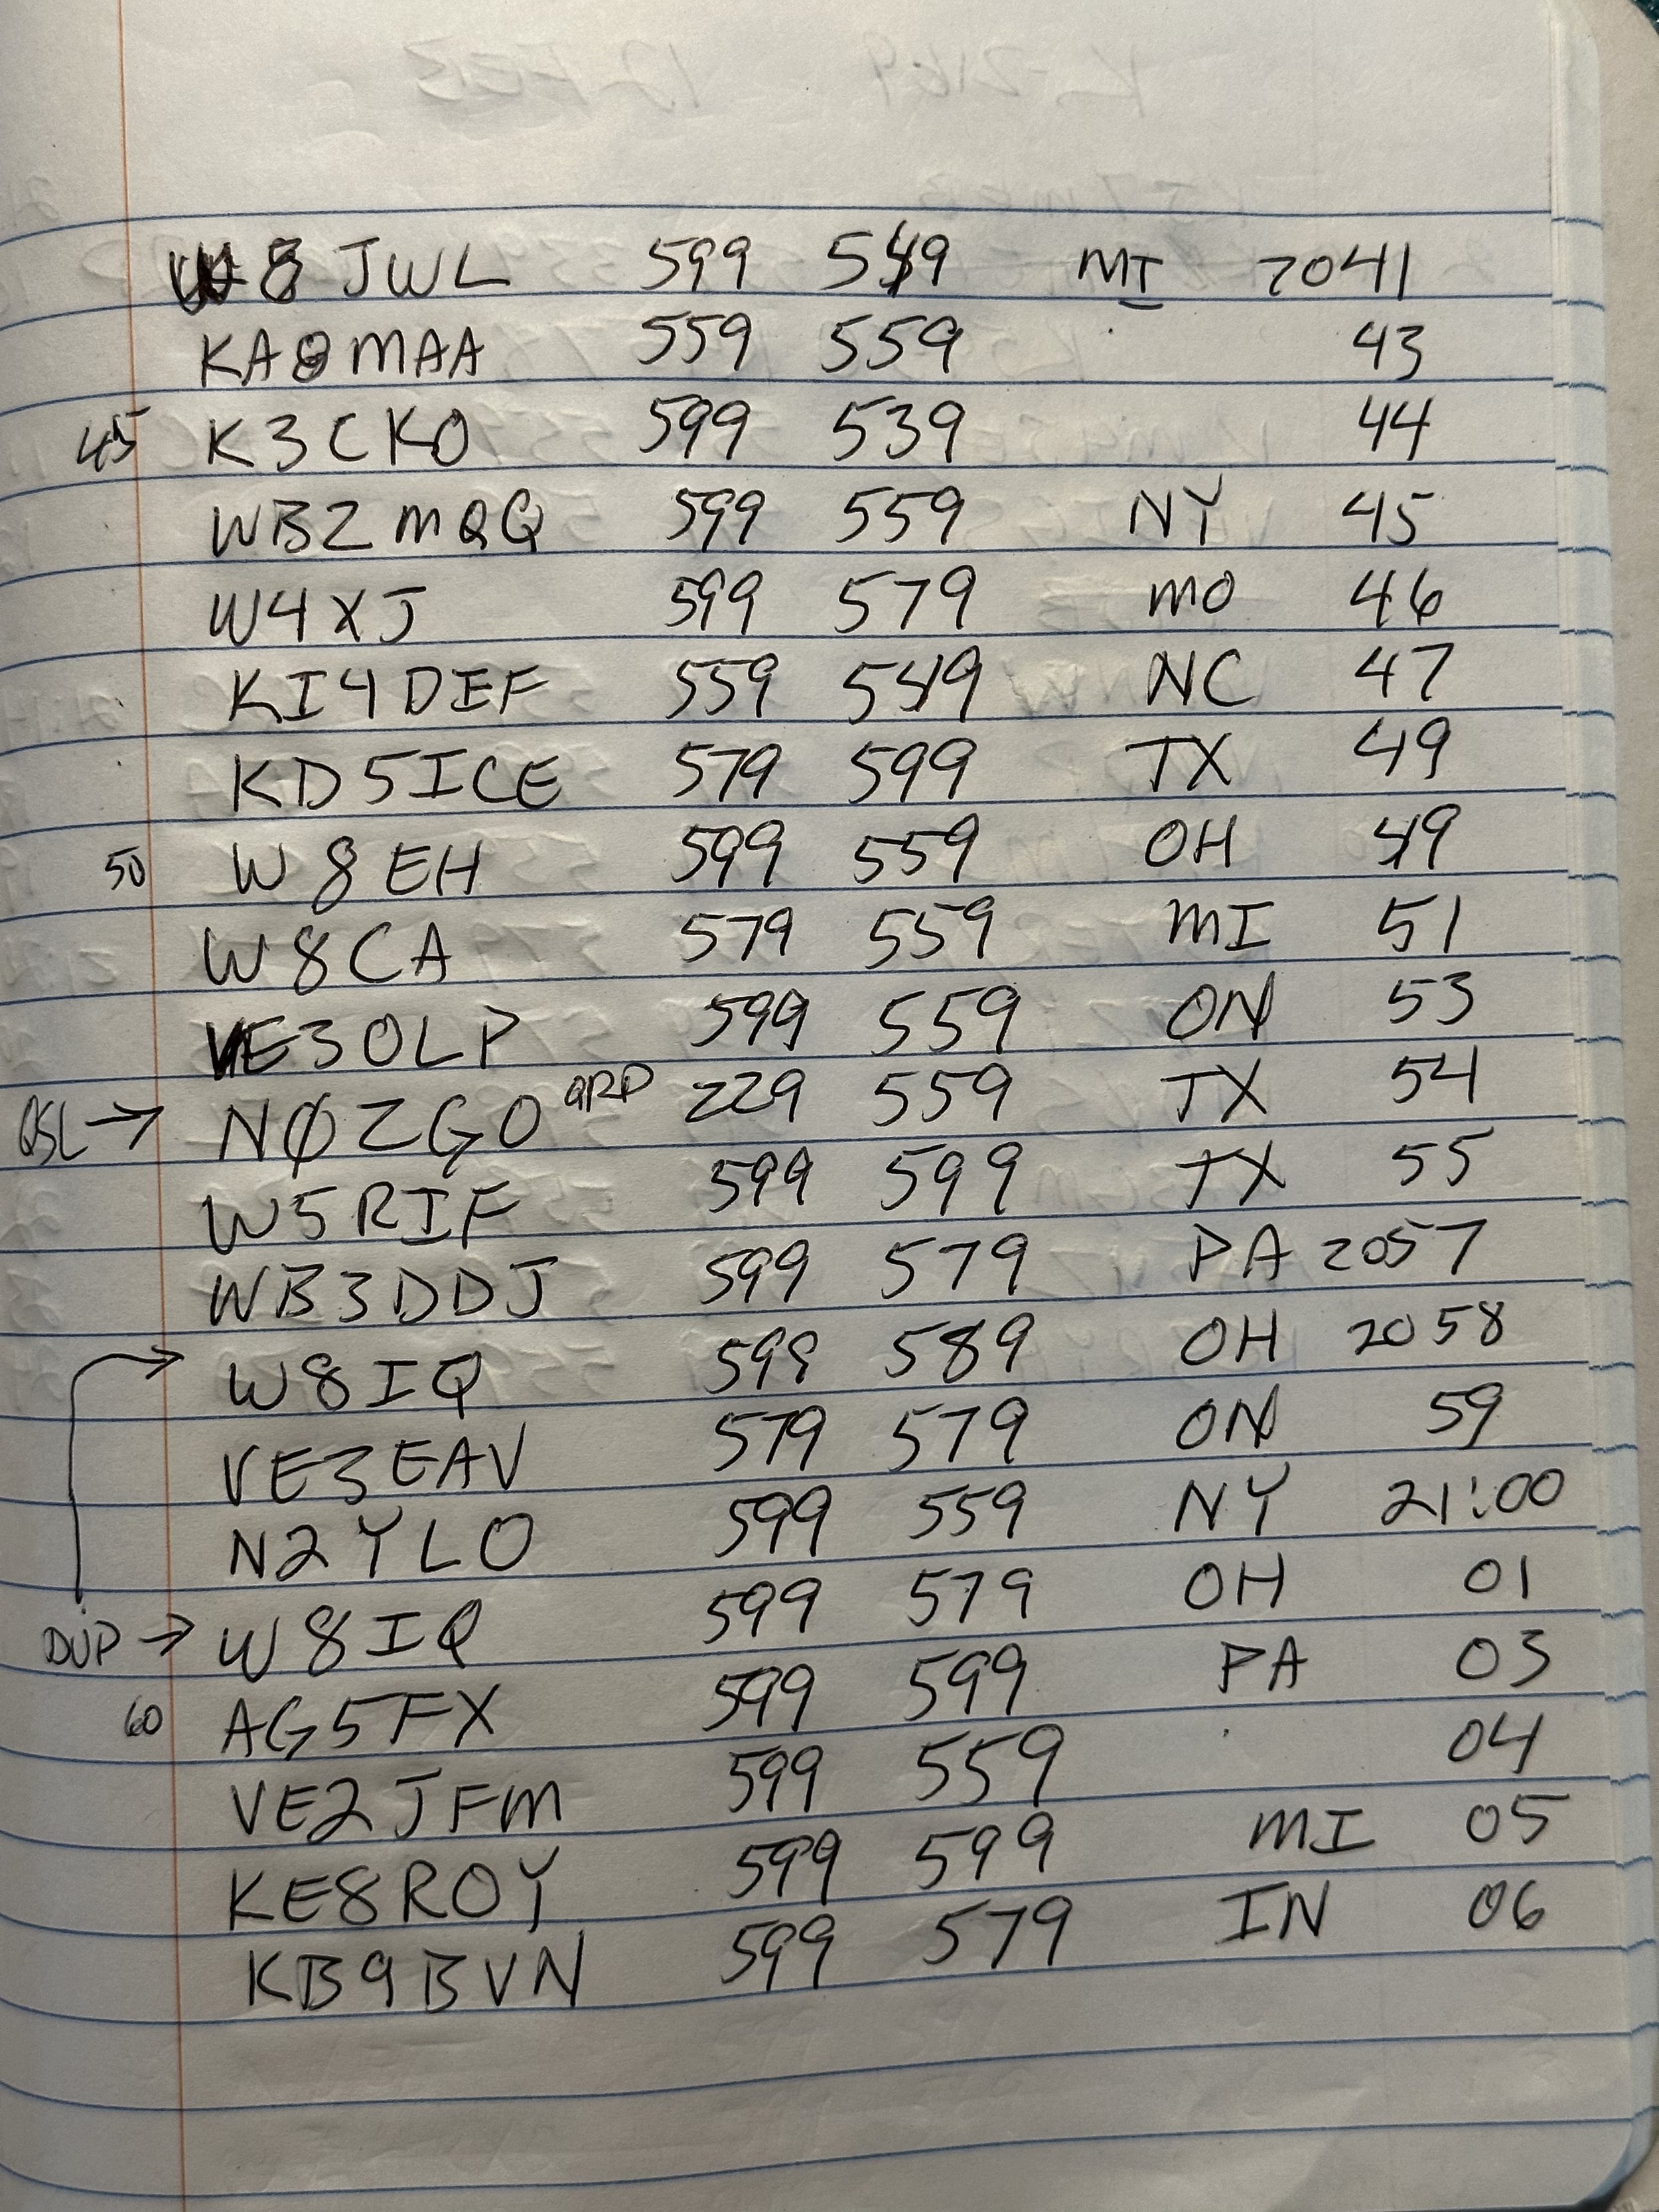 W8JWL 599 549 MI 2041
KA8MAA 559 559 43
45 K3CKO 599 539 44
WB2MQQ 599 559 NY 45
W4XJ 599 579 MO 46
KI4DEF 559 549 NC 47
KD5ICE 579 599 TX 49
50 W8EH 599 559 OH 49
W8CA 579 559 MI 51
VE3OLP 599 559 ON 53
QSL → NØZGO QRP 229 559 TX 54
W5RIF 599 599 TX 55
WB3DDJ 599 579 PA 2057
W8IQ 599 589 OH 2058
VE3EAV 579 579 ON 59
N2YLO 599 559 NY 21:00
DUP → W8IQ 599 579 OH 01
60 AG5FX 599 599 PA 03
VE2JFM 599 559 04
KE8ROY 599 599 MI 05
KB9BVN 599 579 IN 06